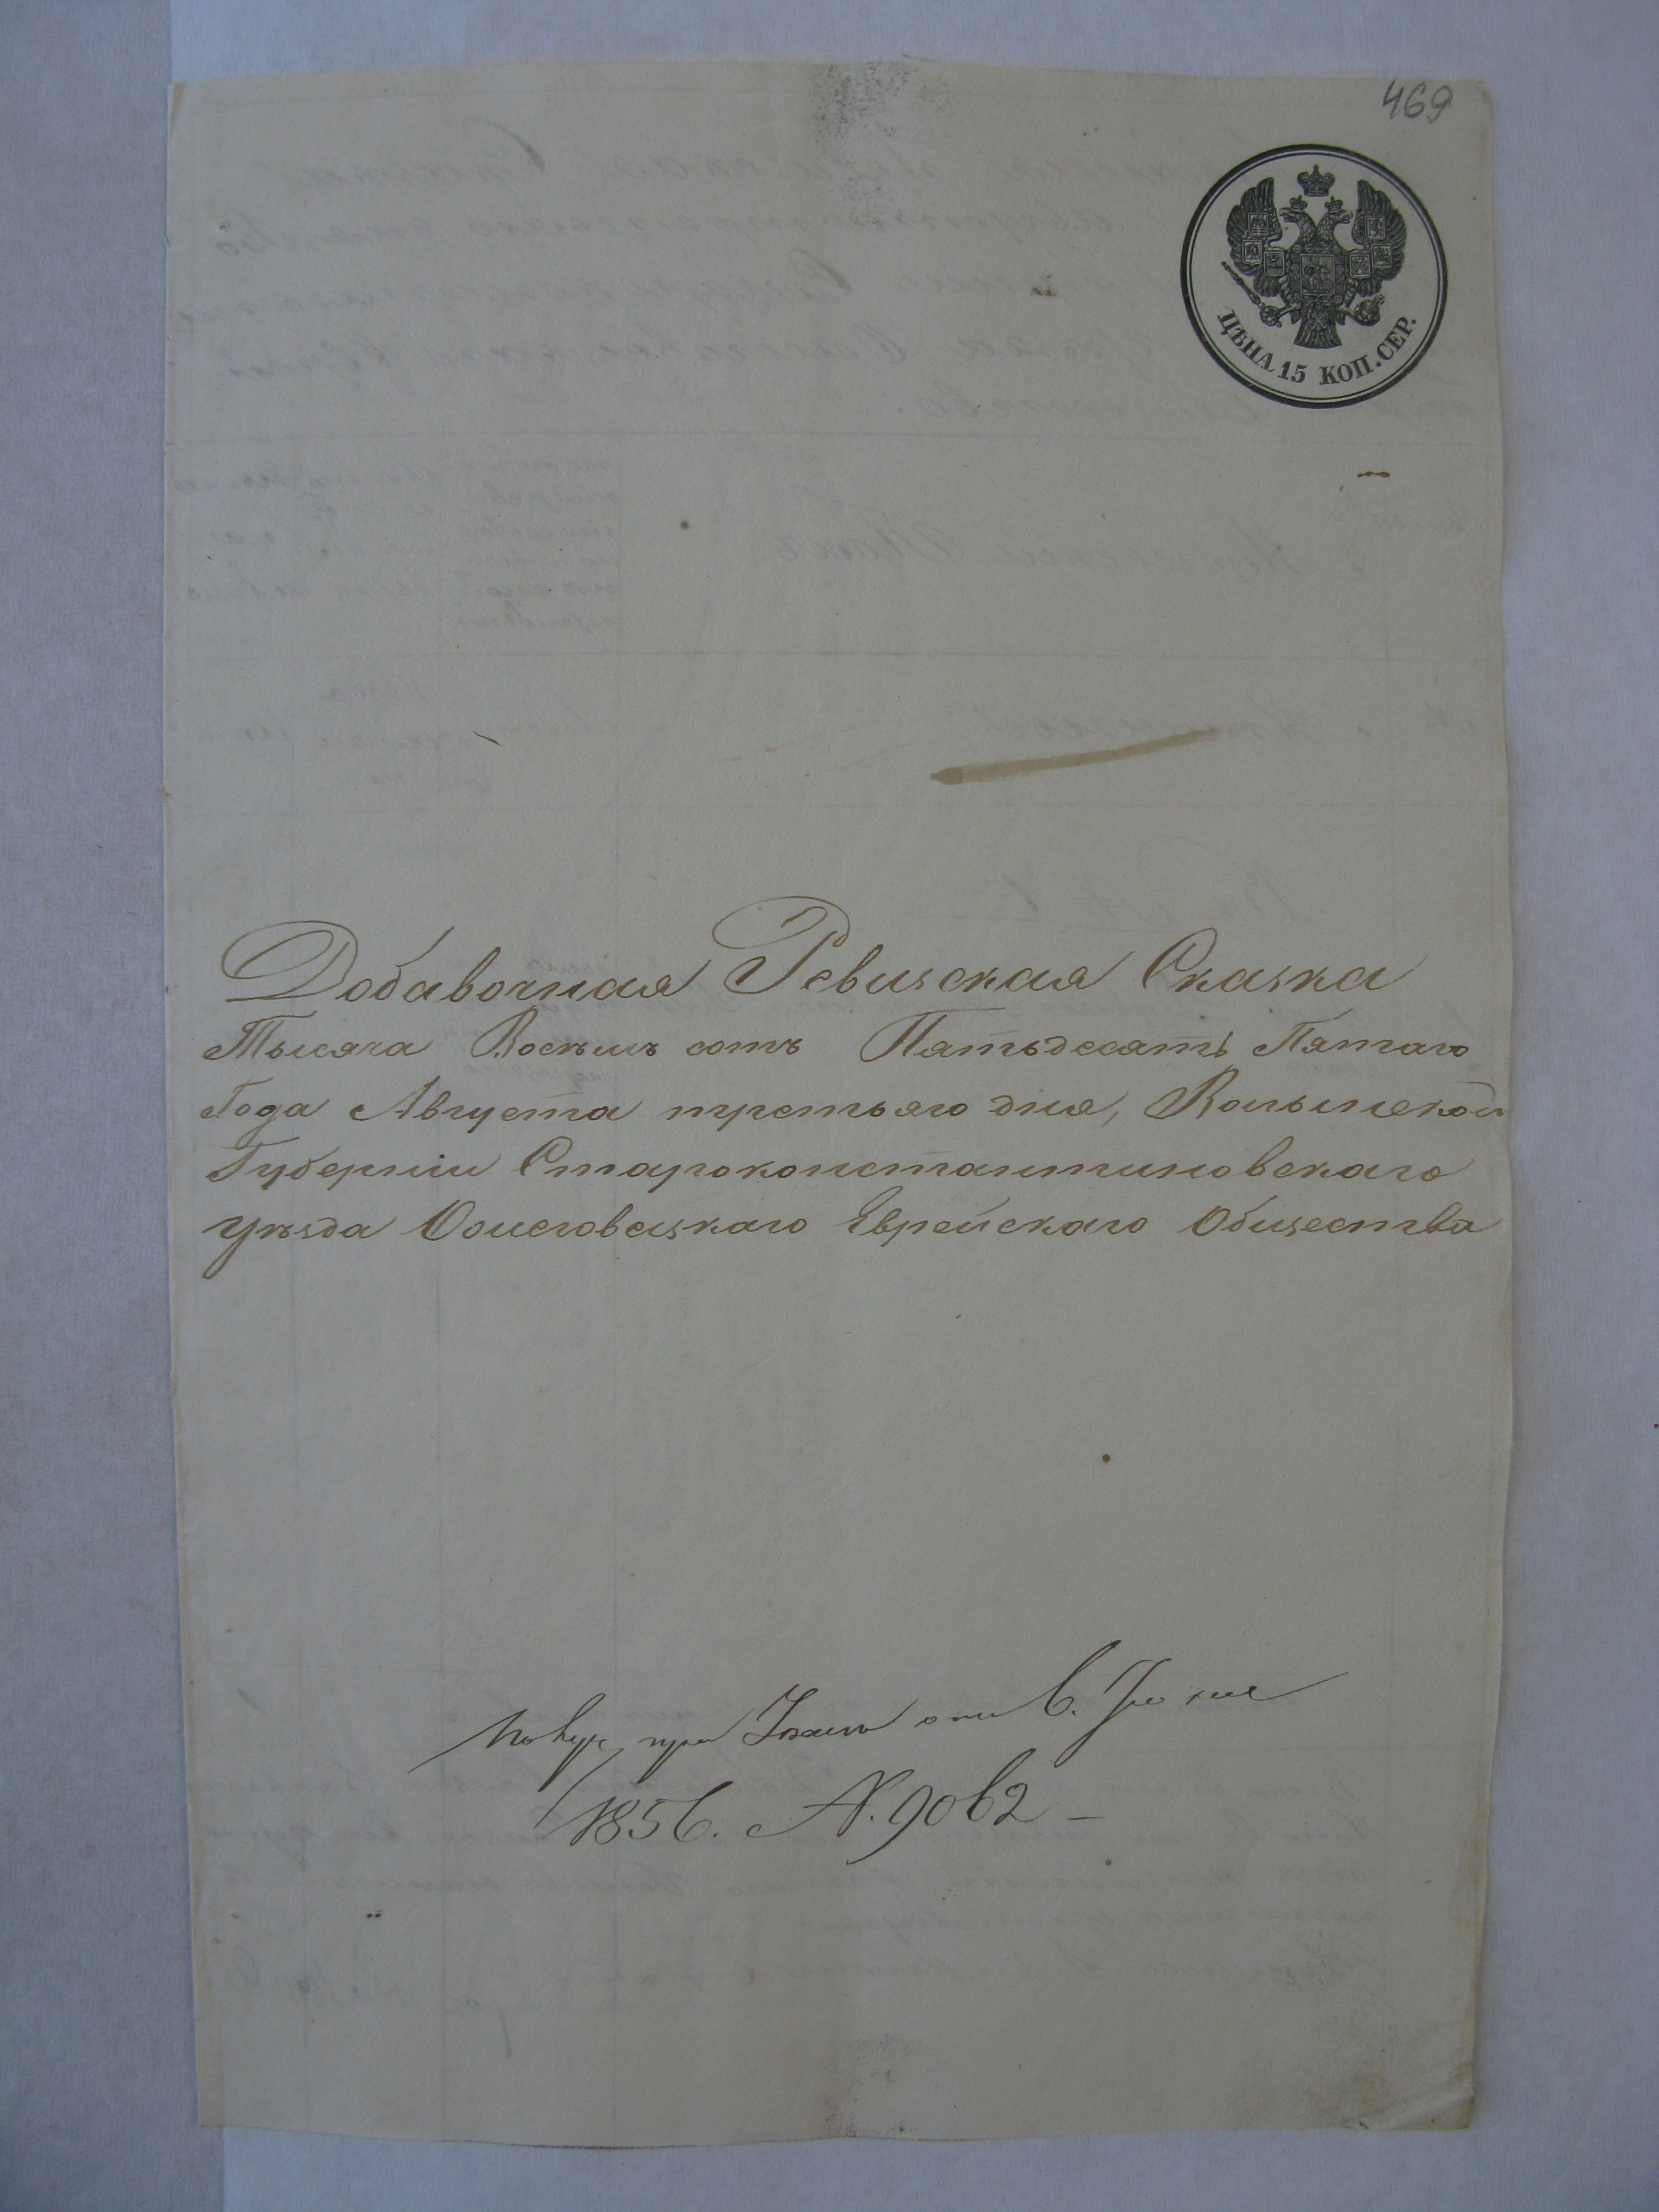 469
ЦѢНА 15 КОП. СЕР.
Добавочная Ревизская Сказка
Тысяча Восѣмь сотъ Пятьдесятъ Пятаго
Года Августа третьяго дня, Волынской
Губерніи Староконстантиновскаго
уѣзда Еврейскаго Общества
при отъ
1856. №. 9062